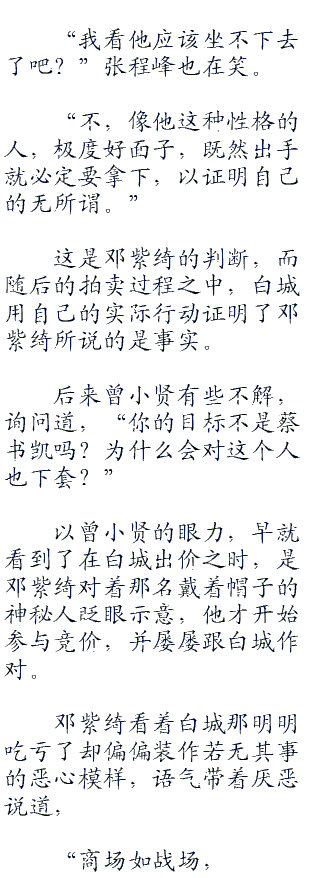 “我看他应该坐不下去
了吧？”张程峰也在笑。
“不，像他这种性格的
人，极度好面子，既然出手
就必定要拿下，以证明自己
的无所谓。”
这是邓紫绮的判断，而
随后的拍卖过程之中，白城
用自己的实际行动证明了邓
紫绮所说的是事实。
后来曾小贤有些不解，
询问道，“你的目标不是蔡
书凯吗？为什么会对这个人
也下套？”
以曾小贤的眼力，早就
看到了在白城出价之时，是
邓紫绮对着那名戴着帽子的
神秘人眨眼示意，他才开始
参与竞价，并屡屡跟白城作
对。
邓紫绮看着白城那明明
吃亏了却偏偏装作若无其事
的恶心模样，语气带着厌恶
说道，
“商场如战场，